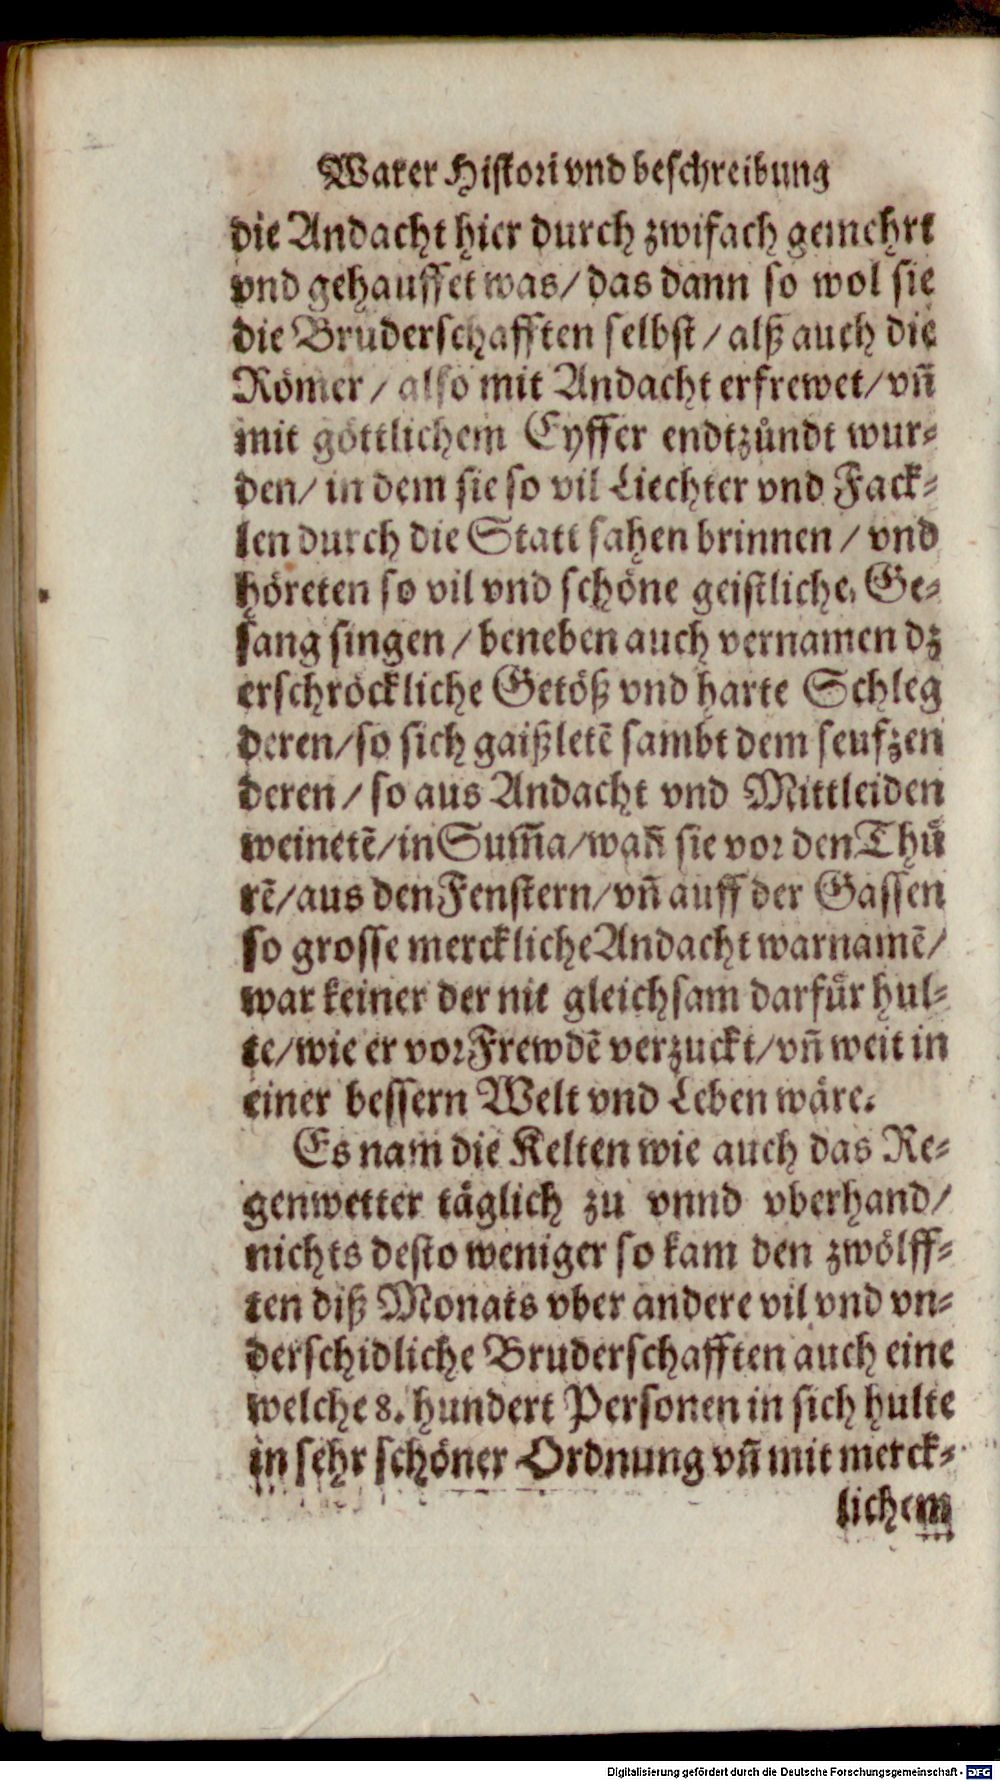 Warer Histori vnd beschreibung
die Andacht hier durch zwifach gemehrt
vnd gehauffet was/ das dann so wol sie
die Bruderschafften selbst / alß auch die
Römer / also mit Andacht erfrewet/ vñ
mit göttlichem Eyffer endtzůndt wur-
den/ in dem sie so vil Liechter vnd Fack-
len durch die Statt sahen brinnen / vnd
höreten so vil vnd schöne geistliche Ge-
sang singen / beneben auch vernamen dz
erschröckliche Getöß vnd harte Schleg
deren/so sich gaißletẽ sambt dem seufzen
deren / so aus Andacht vnd Mittleiden
weinetẽ/in Sum̃a/wañ sie vor den Thů
rẽ/aus den Fenstern/vñ auff der Gassen
so grosse merckliche Andacht warnamẽ/
war keiner der nit gleichsam darfůr hul-
te/wie er vor Frewdẽ verzuckt/vñ weit in
einer bessern Welt vnd Leben wäre.
Es nam die Kelten wie auch das Re-
genwetter täglich zu vnnd vberhand/
nichts desto weniger so kam den zwölff-
ten diß Monats vber andere vil vnd vn-
derschidliche Bruderschafften auch eine
welche 8. hundert Personen in sich hulte
in sehr schöner Ordnung vñ mit merck-
lichem
Digitalisierung gefördert durch die Deutsche Forschungsgemeinschaft - DFG